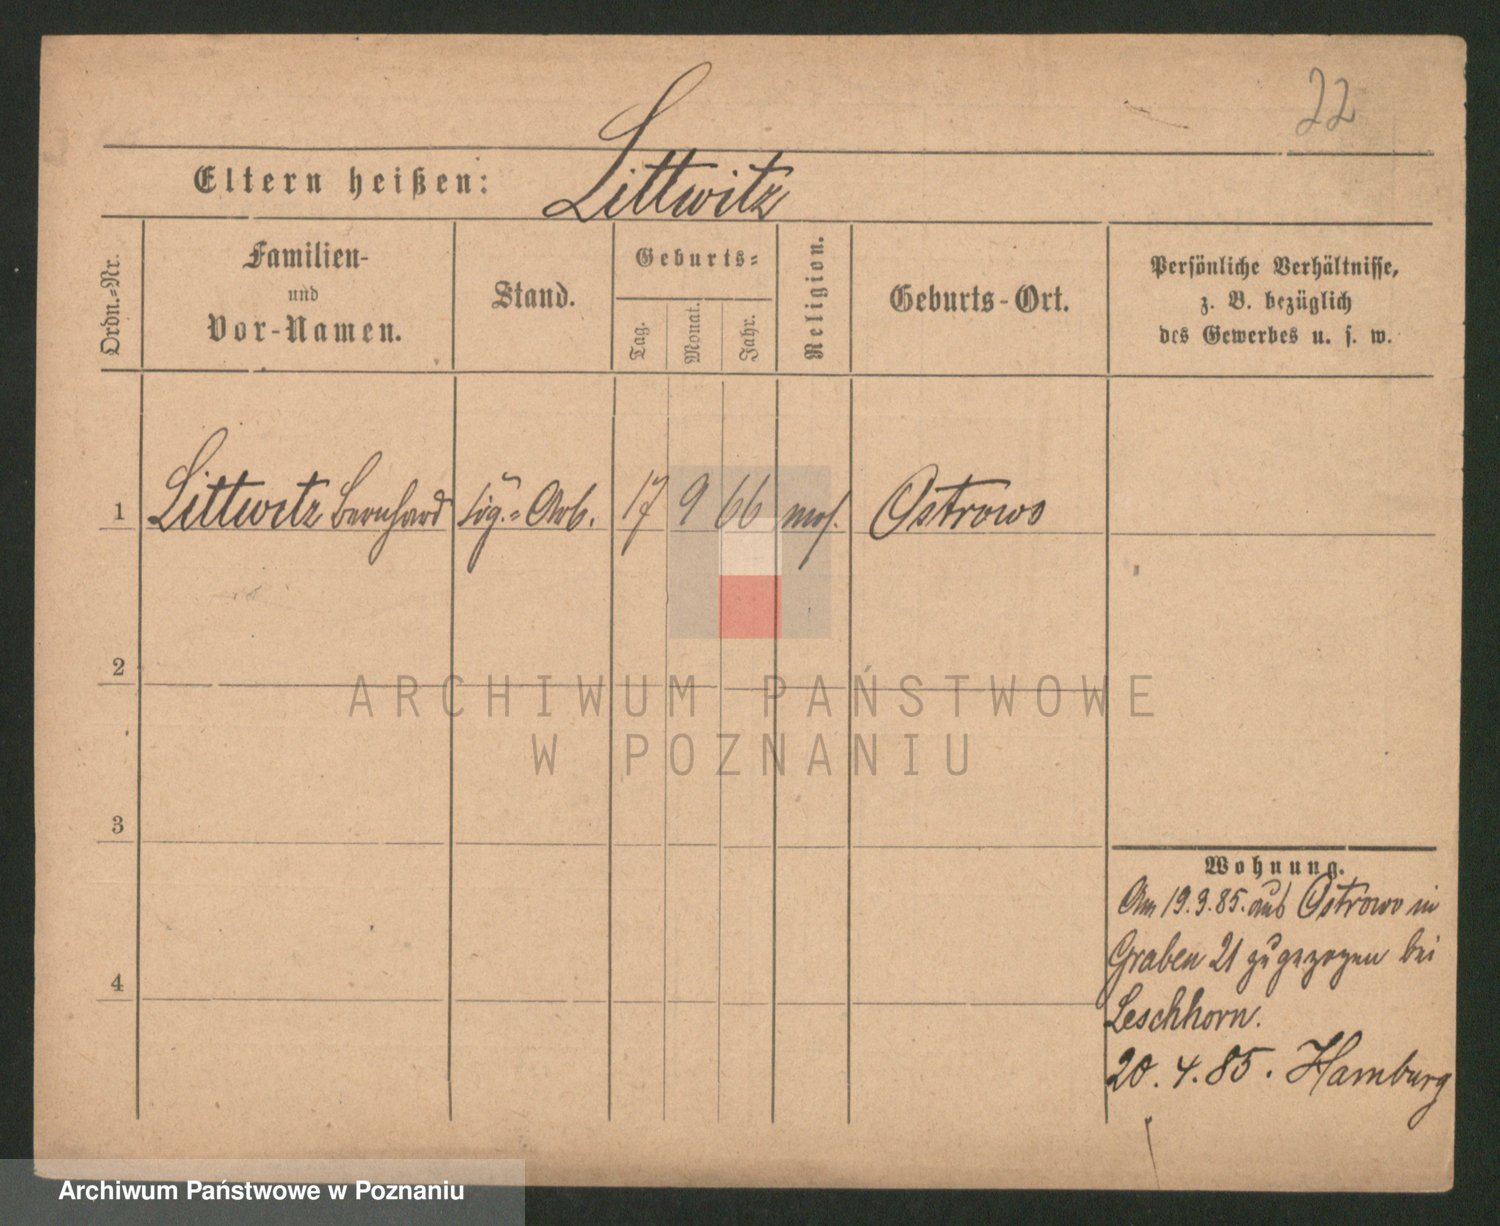 22
Eltern heißen: Littwitz
Ordn.-Nr.
Familien-
und
Vor-Namen.
Stand.
Geburts-
Tag.
Monat.
Jahr.
Religion.
Geburts-Ort.
Persönliche Verhältnisse,
z. B. bezüglich
des Gewerbes u. s. w.
1 Littwitz Bernhard Cig.-Arb. 17 9 66 mos. Ostrowo
2
ARCHIWUM PAŃSTWOWE
W POZNANIU
3
Wohnung.
Am 19.3.85. aus Ostrowo in
Graben 21 zugezogen bei
Leschhorn.
4
20.4.85. Hamburg
Archiwum Państwowe w Poznaniu